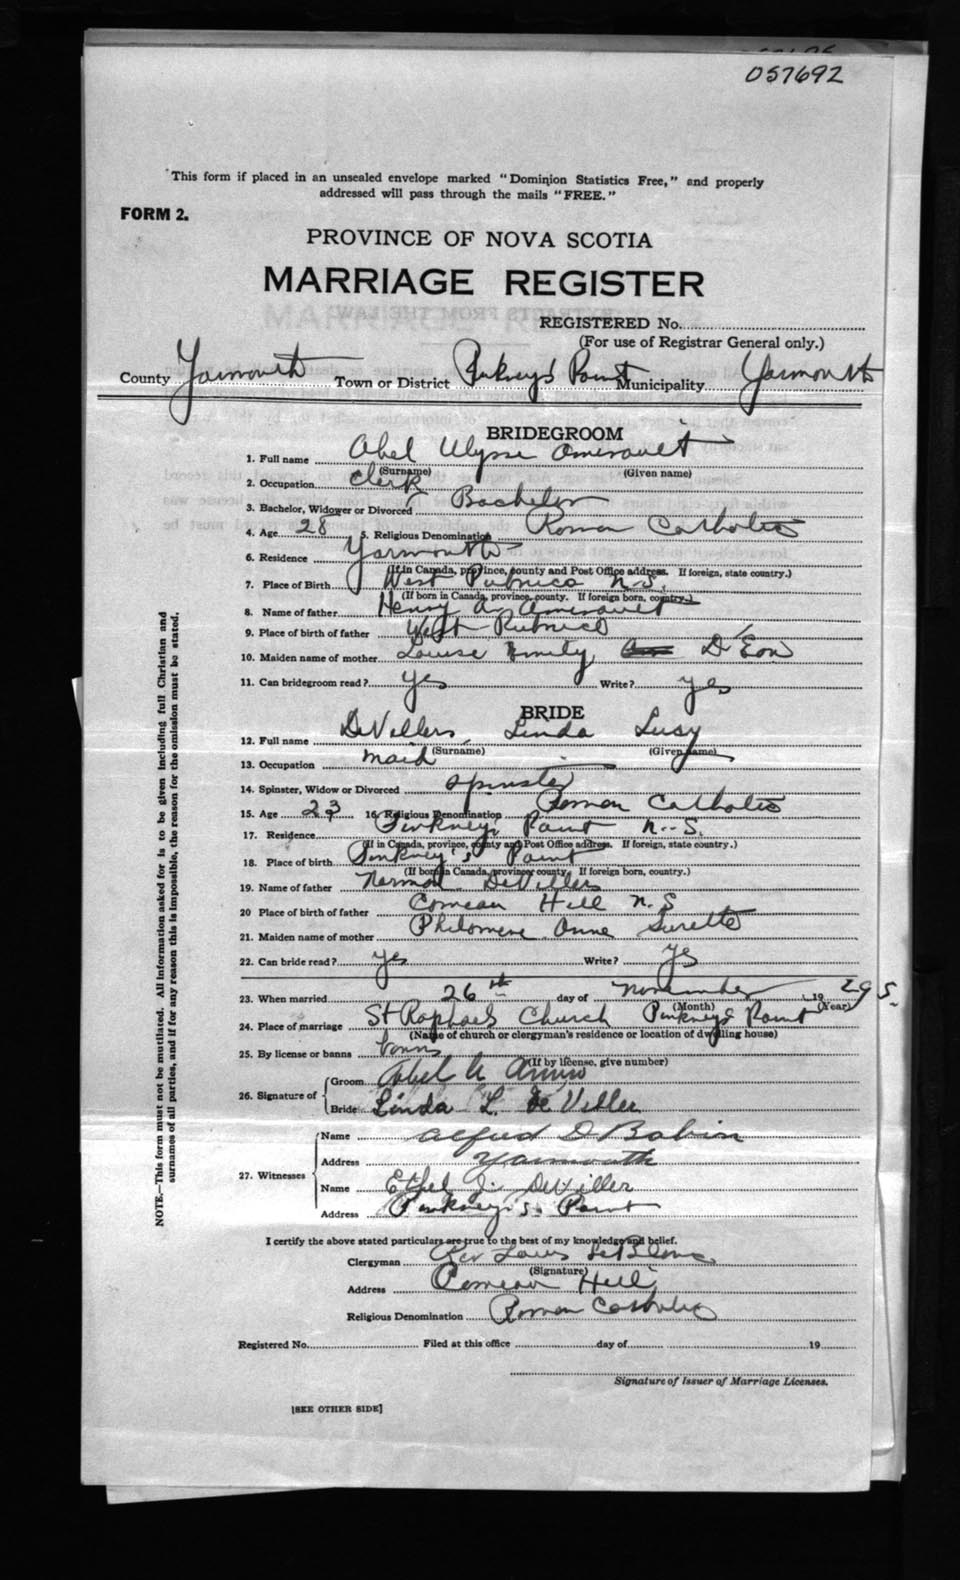 057692
This form if placed in an unsealed envelope marked "Dominion Statistics Free," and properly
addressed will pass through the mails "FREE."
FORM 2.
PROVINCE OF NOVA SCOTIA
MARRIAGE REGISTER
REGISTERED No.
(For use of Registrar General only.)
County Yarmouth Town or District Pinkney's Point Municipality Yarmouth
BRIDEGROOM
1. Full name Abel Ulysse Amirault
(Surname) (Given name)
2. Occupation clerk
3. Bachelor, Widower or Divorced Bachelor
4. Age 28 5. Religious Denomination Roman Catholic
6. Residence Yarmouth
(If in Canada, province, county and Post Office address. If foreign, state country.)
7. Place of Birth West Pubnico N.S.
(If born in Canada, province, county. If foreign born, country.)
8. Name of father Henry A. Amirault
9. Place of birth of father West Pubnico
10. Maiden name of mother Louise Emily D'Eon
11. Can bridegroom read? yes Write? yes
BRIDE
12. Full name DeViller Linda Lusy
(Surname) (Given name)
13. Occupation maid
14. Spinster, Widow or Divorced spinster
15. Age 23 16. Religious Denomination Roman Catholic
17. Residence Pinkney's Point N.S.
(If in Canada, province, county and Post Office address. If foreign, state country.)
18. Place of birth Pinkney's Point
(If born in Canada, province county. If foreign born, country.)
19. Name of father Norman DeViller
20 Place of birth of father Comeau Hill N.S
21. Maiden name of mother Philomene Anne Surette
22. Can bride read? yes Write? yes
23. When married 26th day of November 19 29
(Month) (Year)
24. Place of marriage St Raphael's Church Pinkney's Point
(Name of church or clergyman's residence or location of dwelling house)
25. By license or banns banns
(If by license, give number)
26. Signature of Groom Abel U
Bride Linda L. DeViller
27. Witnesses
Name Alfred D Babin
Address Yarmouth
Name Ethel J. DeViller
Address Pinkney's Point
I certify the above stated particulars are true to the best of my knowledge and belief.
Clergyman Rev Louis LeBlanc
(Signature)
Address Comeau Hill
Religious Denomination Roman Catholic
Registered No. Filed at this office day of 19
Signature of Issuer of Marriage Licenses.
[SEE OTHER SIDE]
NOTE.—This form must not be mutilated. All information asked for is to be given including full Christian and
surnames of all parties, and if for any reason this is impossible, the reason for the omission must be stated.